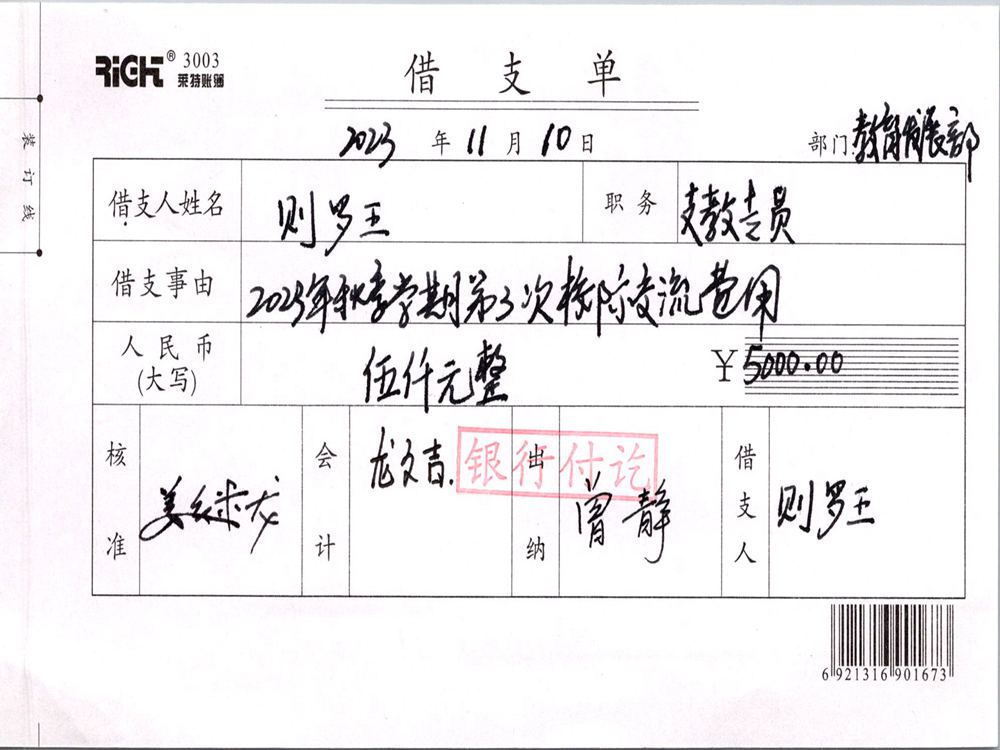 RiGHT® 3003
莱特账簿
借 支 单
2023 年 11 月 10 日
部门:教育发展部
装订线
借支人姓名 则罗王 职务 支教专员
借支事由 2023年秋季学期第3次校际交流费用
人民币(大写) 伍仟元整 ¥5000.00
核准 姜继龙 会计 龙文吉. 出纳 曾静 借支人 则罗王
银行付讫
6 921316 901673